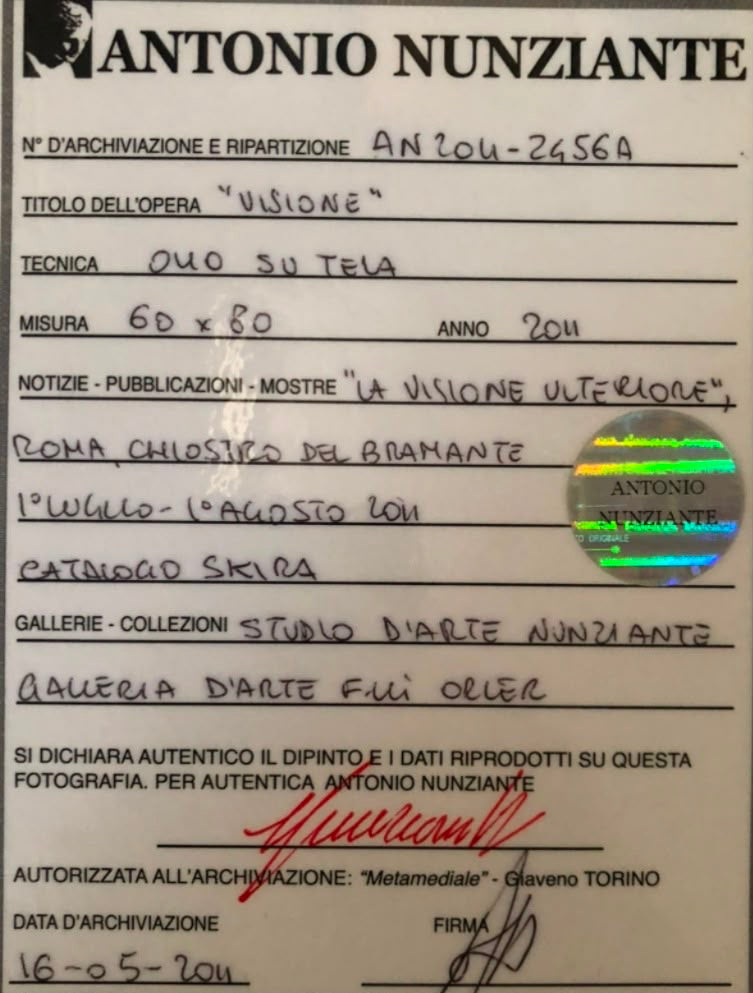 ANTONIO NUNZIANTE
N° D'ARCHIVIAZIONE E RIPARTIZIONE AN2011-2456A
TITOLO DELL'OPERA "VISIONE"
TECNICA OLIO SU TELA
MISURA 60 x 80 ANNO 2011
NOTIZIE - PUBBLICAZIONI - MOSTRE "LA VISIONE ULTERIORE",
ROMA, CHIOSTRO DEL BRAMANTE
1° LUGLIO - 1° AGOSTO 2011
CATALOGO SKIRA
ANTONIO
NUNZIANTE
ORIGINALE
GALLERIE - COLLEZIONI STUDIO D'ARTE NUNZIANTE
GALLERIA D'ARTE F.lli ORLER
SI DICHIARA AUTENTICO IL DIPINTO E I DATI RIPRODOTTI SU QUESTA
FOTOGRAFIA. PER AUTENTICA ANTONIO NUNZIANTE
AUTORIZZATA ALL'ARCHIVIAZIONE: "Metamediale" - Giaveno TORINO
DATA D'ARCHIVIAZIONE FIRMA
16-05-2011